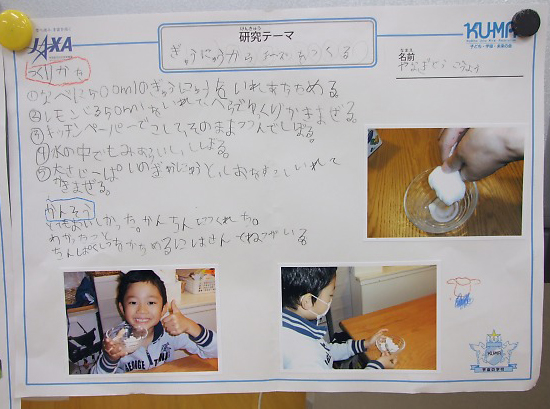 JAXA
けんきゅう
研究テーマ
ぎゅうにゅうから チーズをつくる
KUMA
子ども・宇宙・未来の会
なまえ
名前
つくりかた
①なべに500mlのぎゅうにゅうをいれあたためる。
②レモンじる50mlをいれて、へらでゆっくりかきまぜる。
③キッチンペーパーでこして、そのままつつんでしぼる。
④水の中でもみあらいし、しぼる。
⑤大さじ一ぱいのぎゅうにゅうと、しおをすこしいれて
かきまぜる。
かんそう
とてもおいしかった。かんたんにつくれた。
KUMA
宇宙の学校